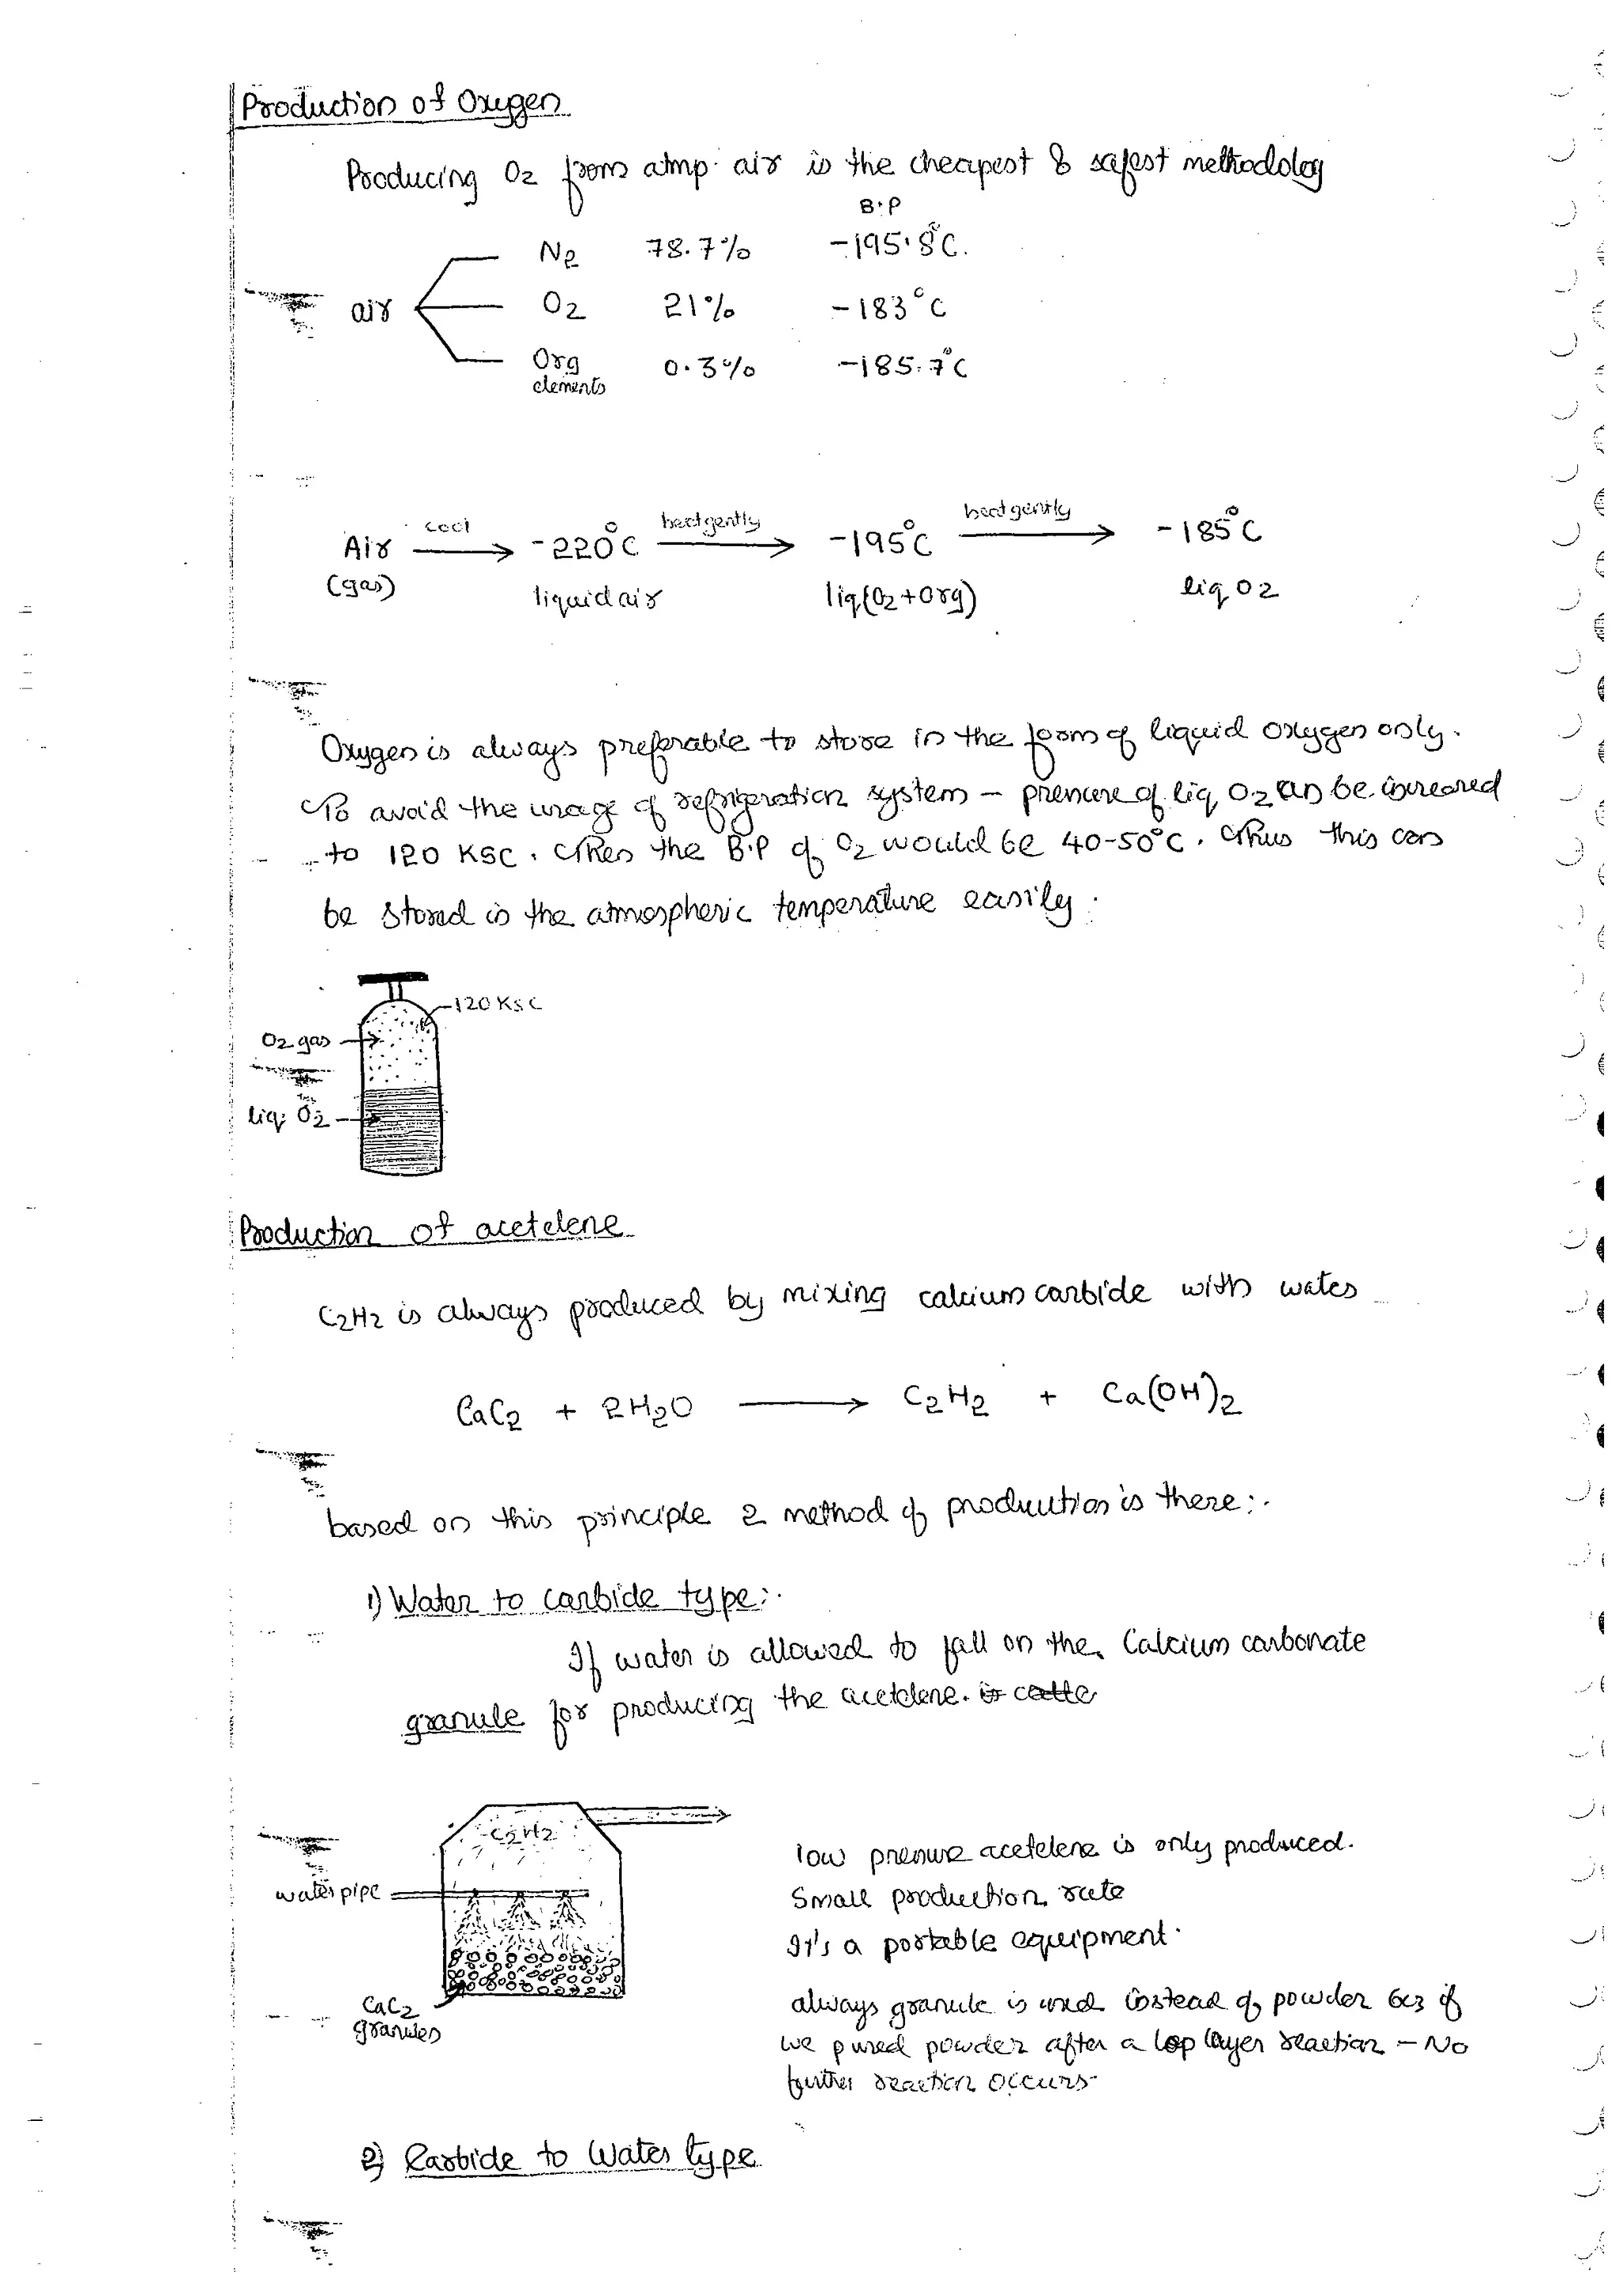 Production of Oxygen
Producing O2 from atmp. air is the cheapest & safest methodolog
B.P
N2 78.7% -195.8°C.
air O2 21% -183°C
Org 0.3% -185.7°C
elements
Air cool -220°C heat gently -195°C heat gently -185°C
(gas) liquid air liq(O2+Org) liq O2
Oxygen is always preferable to store in the form of liquid oxygen only.
To avoid the usage of refrigeration system - pressure of liq O2 can be increased
to 120 KSC. Then the B.P of O2 would be 40-50°C. Thus this can
be stored in the atmospheric temperature easily.
120 KSC
O2 gas
liq. O2
Production of acetelene
C2H2 is always produced by mixing calcium carbide with water
CaC2 + 2H2O → C2H2 + Ca(OH)2
based on this principle 2 method of production is there:.
1) Water to carbide type:.
If water is allowed to fall on the Calcium carbonate
granule for producing the acetelene. is calle
C2H2
water pipe
CaC2
granules
low pressure acetelene is only produced.
Small production rate
It's a portable equipment.
always granule is used instead of powder bcz if
we p used powder after a top layer reaction - No
further reaction occurs.
2) Carbide to Water type